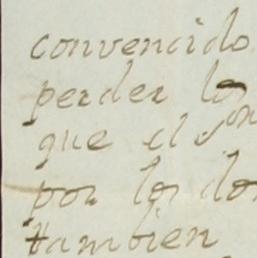 convencido
perder los
que el son
por los do
tambien